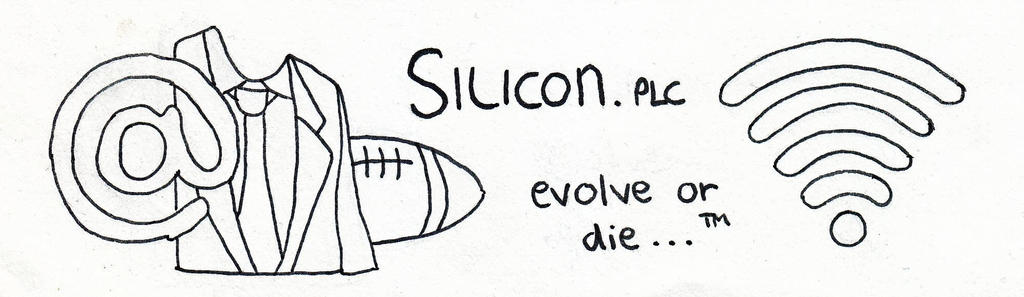 @
SILICON. PLC
evolve or
die...™